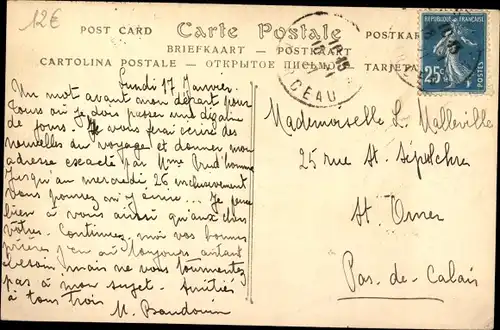 12€
POST CARD Carte Postale POSTKAR
BRIEFKAART — POSTKORT
CARTOLINA POSTALE — ОТКРЫТОЕ ПИСЬМО — TARJETA
RÉPUBLIQUE FRANÇAISE
25c
POSTES
CEAU
Lundi 17 Janvier.
Un mot avant mon départ pour
Tours où je dois passer une dizaine
de jours. Je vous ferai écrire des
nouvelles du voyage et donner mon
adresse exacte par Mme Prud'homme
Jusqu'au mercredi 26 inclusivement
vous pourrez m'y écrire... Je pense
bien à vous ainsi qu'aux chers
vôtres. Continuez moi vos bonnes
prières j'en ai toujours autant
besoin mais ne vous tourmentez
pas à mon sujet. Amitiés
à tous trois
M. Baudouin
Mademoiselle L. Malleville
25 rue St. Sépulchre
St. Omer
Pas-de-Calais